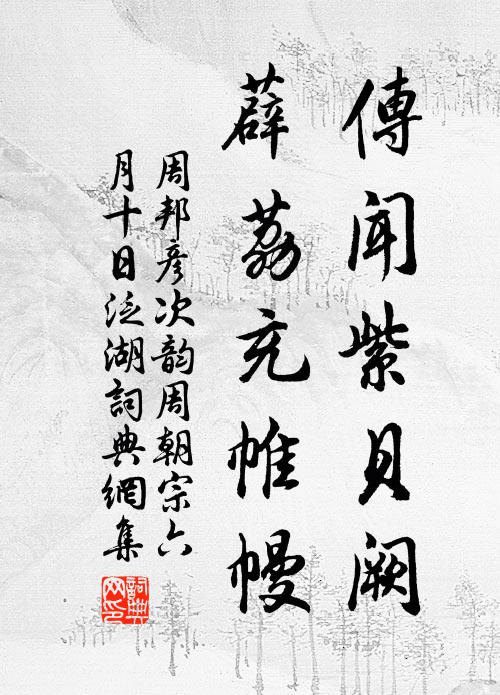 傳聞紫貝闕
薜荔充帷幔
周邦彦次韵周朝宗六
月十日泛湖詞典網集